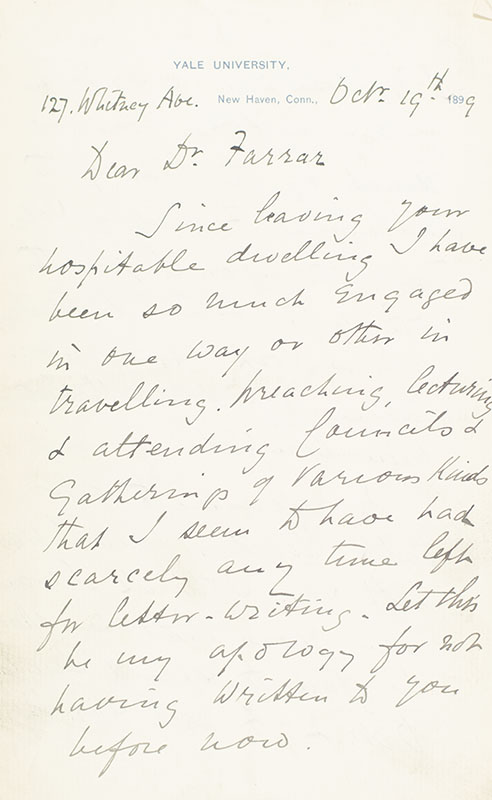 YALE UNIVERSITY,
127. Whitney Ave. New Haven, Conn., Octr. 19th 1899
Dear Dr. Farrar
Since leaving your
hospitable dwelling I have
been so much engaged
in one way or other in
travelling, preaching, lecturing
& attending Councils &
Gatherings of various Kinds
that I seem to have had
scarcely any time left
for letter-writing. Let this
be my apology for not
having written to you
before now.